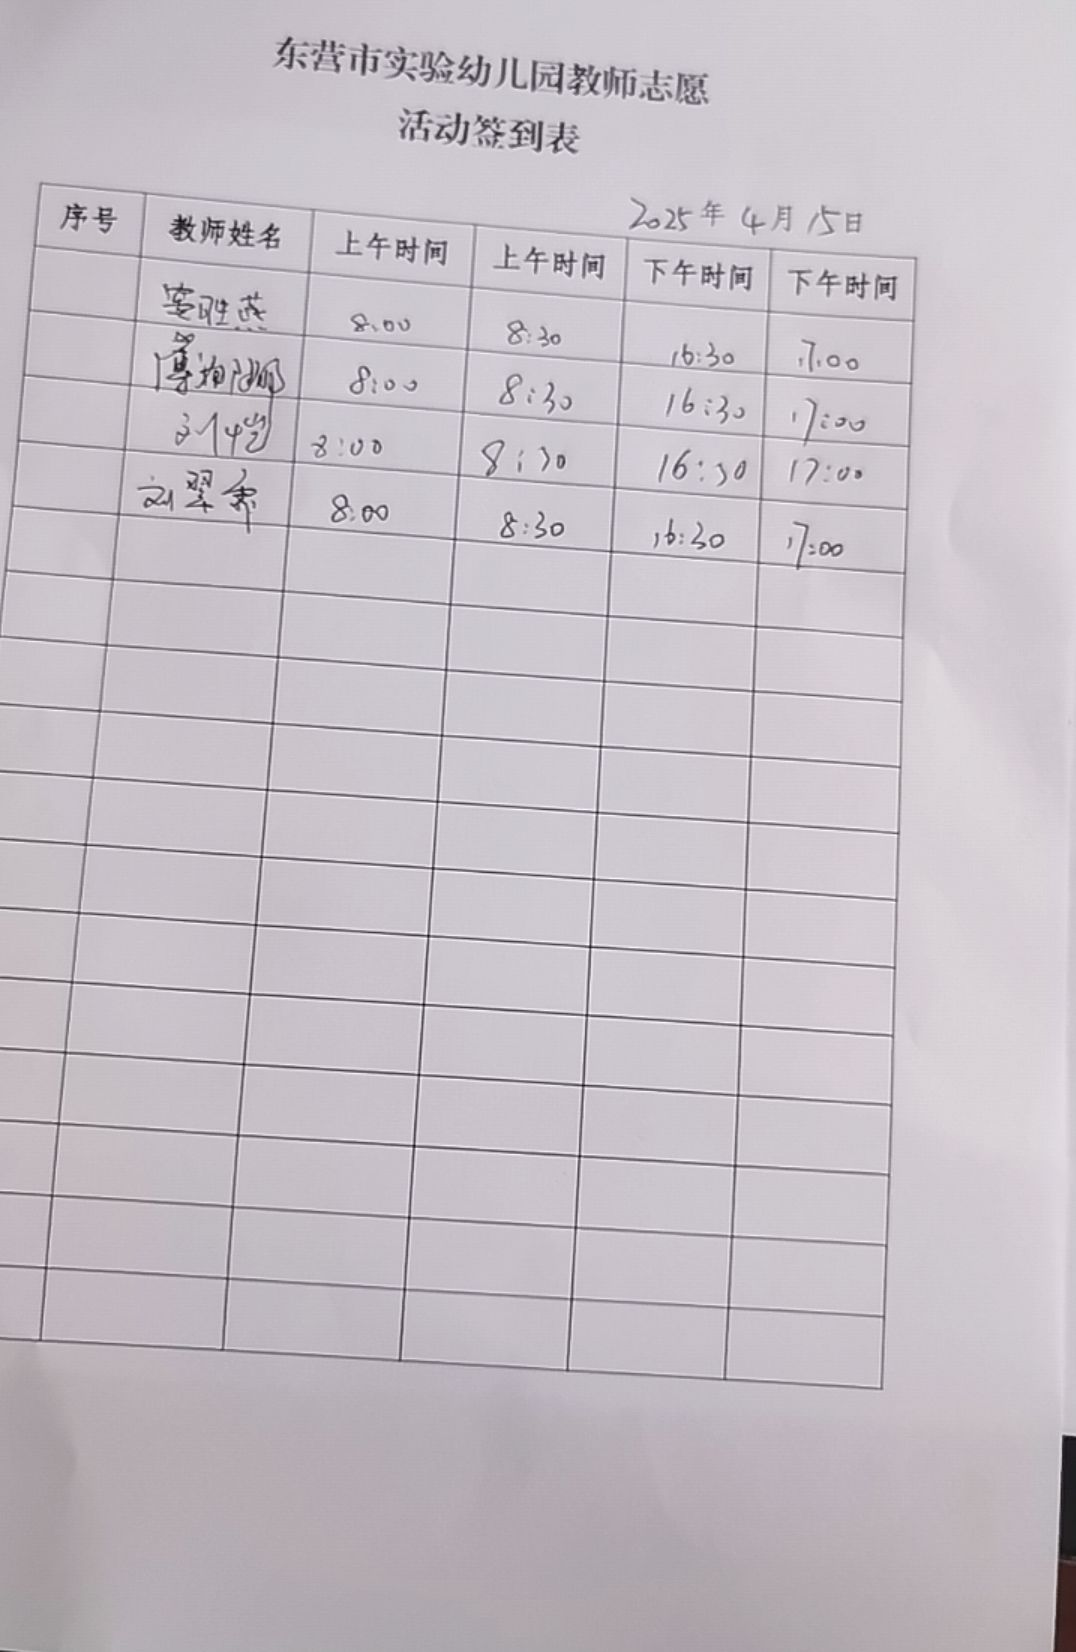 东营市实验幼儿园教师志愿
活动签到表
2025年4月15日
序号 教师姓名 上午时间 上午时间 下午时间 下午时间
胜燕 8:00 8:30 16:30 17:00
8:00 8:30 16:30 17:00
刘 8:00 8:30 16:30 17:00
刘翠 8:00 8:30 16:30 17:00